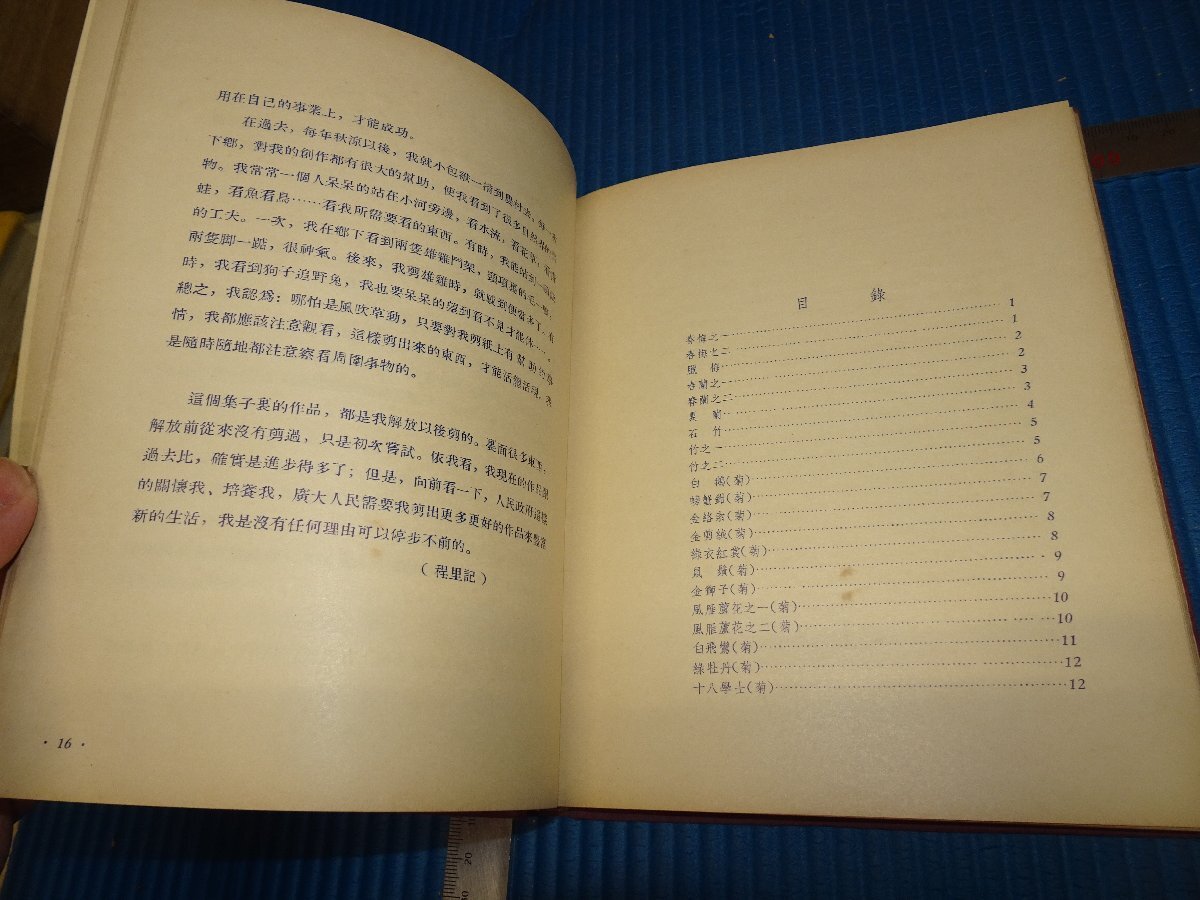 用在自己的事業上，才能成功。
在過去，每年秋凉以後，我就小包袱一揹到農村去，
下鄉，對我的創作都有很大的幫助，使我看到了很多自然界的
物。我常常一個人呆呆的站在小河旁邊，看水流，看花草，看
蛙，看魚看鳥……看我所需要看的東西。有時，我能站到一
的工夫。一次，我在鄉下看到兩隻雄雞鬥架，頸項裏的毛一
兩隻脚一踮，很神氣。後來，我剪雄雞時，就放到便當來了。有
時，我看到狗子追野兔，我也要呆呆的望到看不見才能休……。
總之，我認爲：哪怕是風吹草動，只要對我剪紙上有幫助的
情，我都應該注意觀看，這樣剪出來的東西，才能活龍活現，我
是隨時隨地都注意察看周圍事物的。
這個集子裏的作品，都是我解放以後剪的。裏面很多東西，
解放前從來沒有剪過，只是初次嘗試。依我看，我現在的作品跟
過去比，確實是進步得多了；但是，向前看一下，人民政府這樣
的關懷我、培養我，廣大人民需要我剪出更多更好的作品來豐富
新的生活，我是沒有任何理由可以停步不前的。
（程里記）
· 16 ·
目 錄
春梅之一……1
春梅之二……1
臘 梅……2
春蘭之一……2
春蘭之二……3
蕙 蘭……3
石 竹……4
竹之一……5
竹之二……5
白 鵝(菊)……6
螃蟹鉗(菊)……7
金絡索(菊)……7
金剪絨(菊)……8
綠衣紅裳(菊)……8
鼠 鬚(菊)……9
金獅子(菊)……9
風雁蘆花之一(菊)……10
風雁蘆花之二(菊)……10
白飛鸞(菊)……11
綠牡丹(菊)……12
十八學士(菊)……12